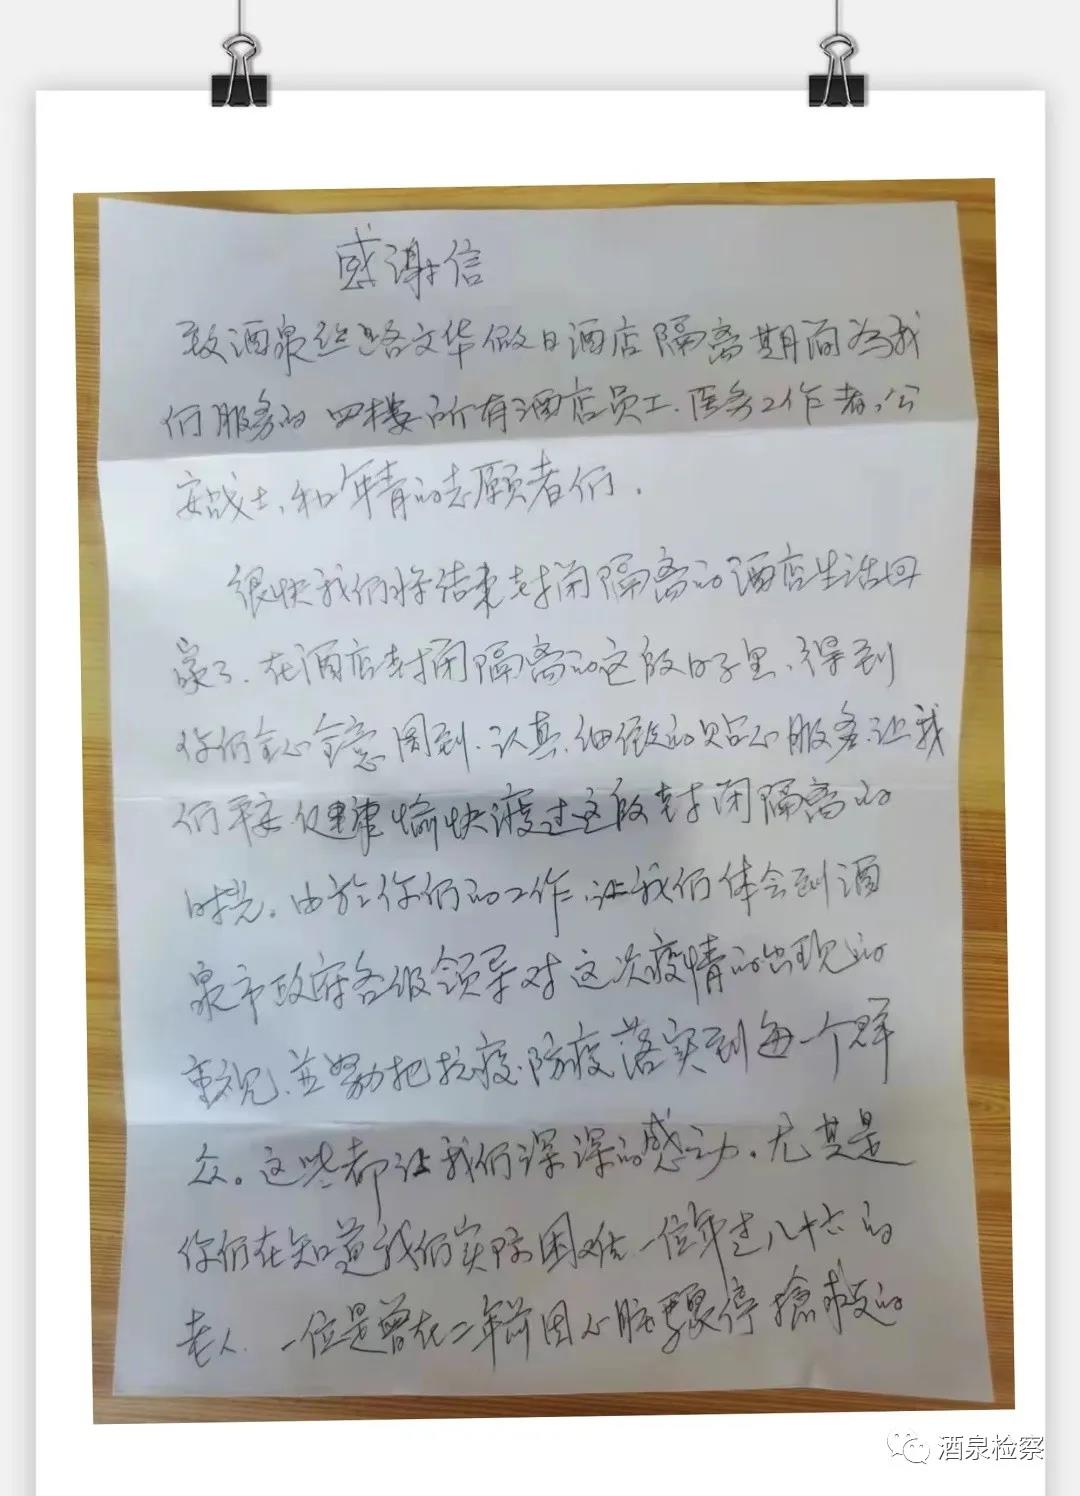 感谢信
致酒泉丝路文华假日酒店隔离期间为我
们服务的四楼所有酒店员工、医务工作者、公
安战士、和年青的志愿者们.
很快我们将结束封闭隔离的酒店生活回
家了.在酒店封闭隔离的这段日子里、得到
你们全心全意周到、认真、细微的贴心服务、让我
们平安健康愉快渡过这段封闭隔离的
时光。由於你们的工作、让我们体会到酒
泉市政府各级领导对这次疫情的出现的
重视、並努力把抗疫、防疫落实到每一个群
众。这些都让我们深深的感动。尤其是
你们在知道我们实际困难、一位年过八十六的
老人.一位是曾在二年前因心脏骤停搶救的
酒泉检察